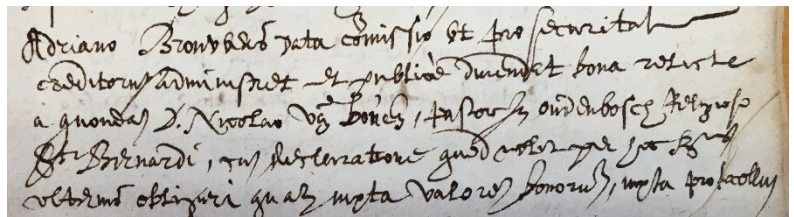 Adriano Bronubens data comissio ut pro securitate
creditoru administret et publice divendat bona relicta
a quondam D. Nicolao Vã Bouen, pastore in oudenbosch Religioso
Sti Bernardi, cum declaratione quod per hoc
ulterius obligari quam iuxta valorem bonorum, iuxta protocollum